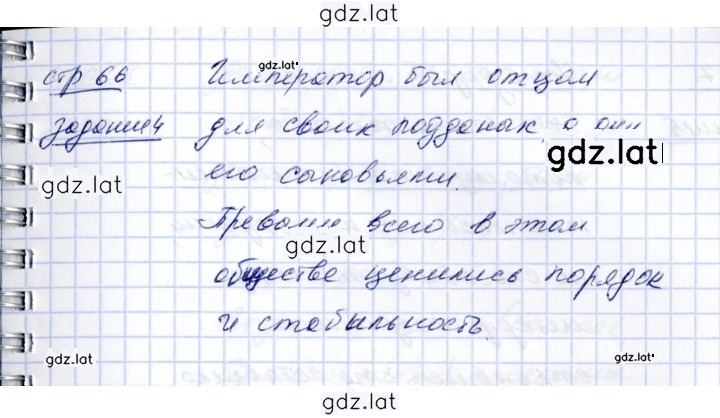 gdz.lat
gdz.lat
стр 66 Император был отцом
задание4 для своих подданых, а они
gdz.lat
gdz.lat
его сыновьями.
Превыше всего в этом
gdz.lat
обществе ценились порядок
и стабильность.
gdz.lat
gdz.lat
gdz.lat